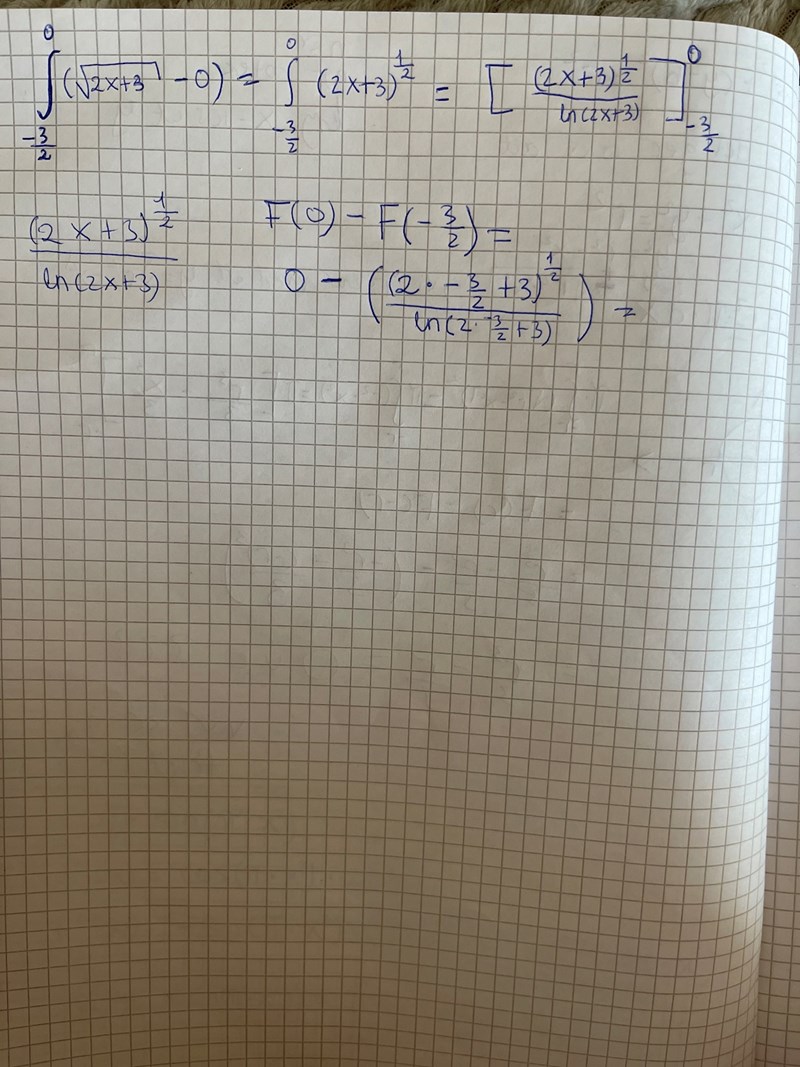 ∫_{-3/2}^{0} (√(2x+3) - 0) = ∫_{-3/2}^{0} (2x+3)^{1/2} = [ (2x+3)^{1/2} / ln(2x+3) ]_{-3/2}^{0}
(2x+3)^{1/2} / ln(2x+3)
F(0) - F(-3/2) =
0 - ( (2·-3/2+3)^{1/2} / ln(2·-3/2+3) ) =